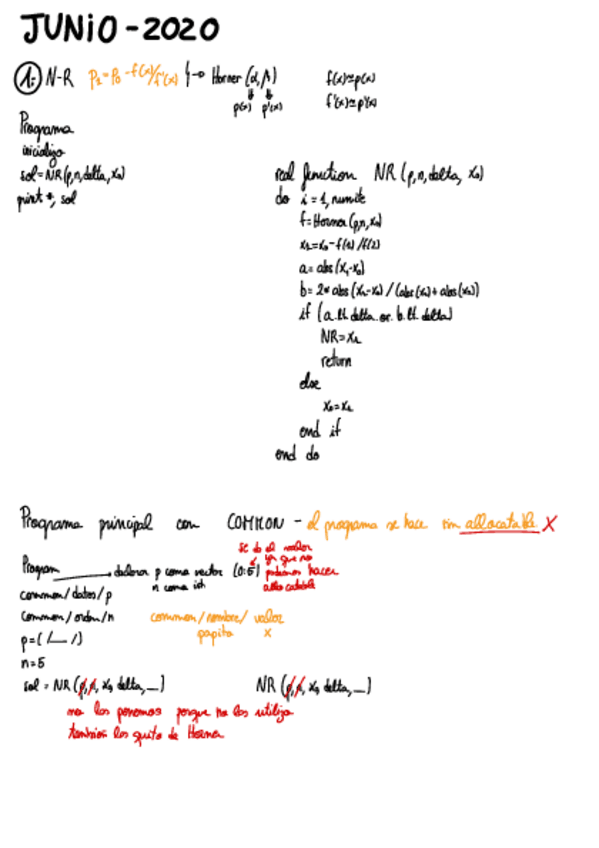 JUNIO - 2020
1. N-R P₁=P₀ -f(x)/f'(x) → Horner (α, β) f(x)≃p(x)
p(x) p'(x) f'(x)≃p'(x)
Programa
inicializo
sol=NR(p,n,delta,x₀)
print *, sol
real function NR (p,n,delta, x₀)
do i = 1, numite
f=Horner(p,n,x₀)
x₁=x₀-f(1)/f(2)
a=abs(x₁-x₀)
b= 2* abs (x₁-x₀) / (abs(x₁)+ abs(x₀))
if (a.lt.delta.or.b.lt.delta)
NR=x₁
return
else
x₀=x₁
end if
end do
Programa principal con COMMON - el programa se hace sin allocatable X
Program declarar p como vector (0:5)
n como int
se da el valor
ya que no
podemos hacer
allocatable
common/datos/p
common/orden/n
common/nombre/ valor
papito x
p=(/ /)
n=5
sol = NR(p,n, x₀ delta, ...) NR (p,n, x₀ delta, ...)
no los ponemos porque no los utiliza
también los quito de Horner